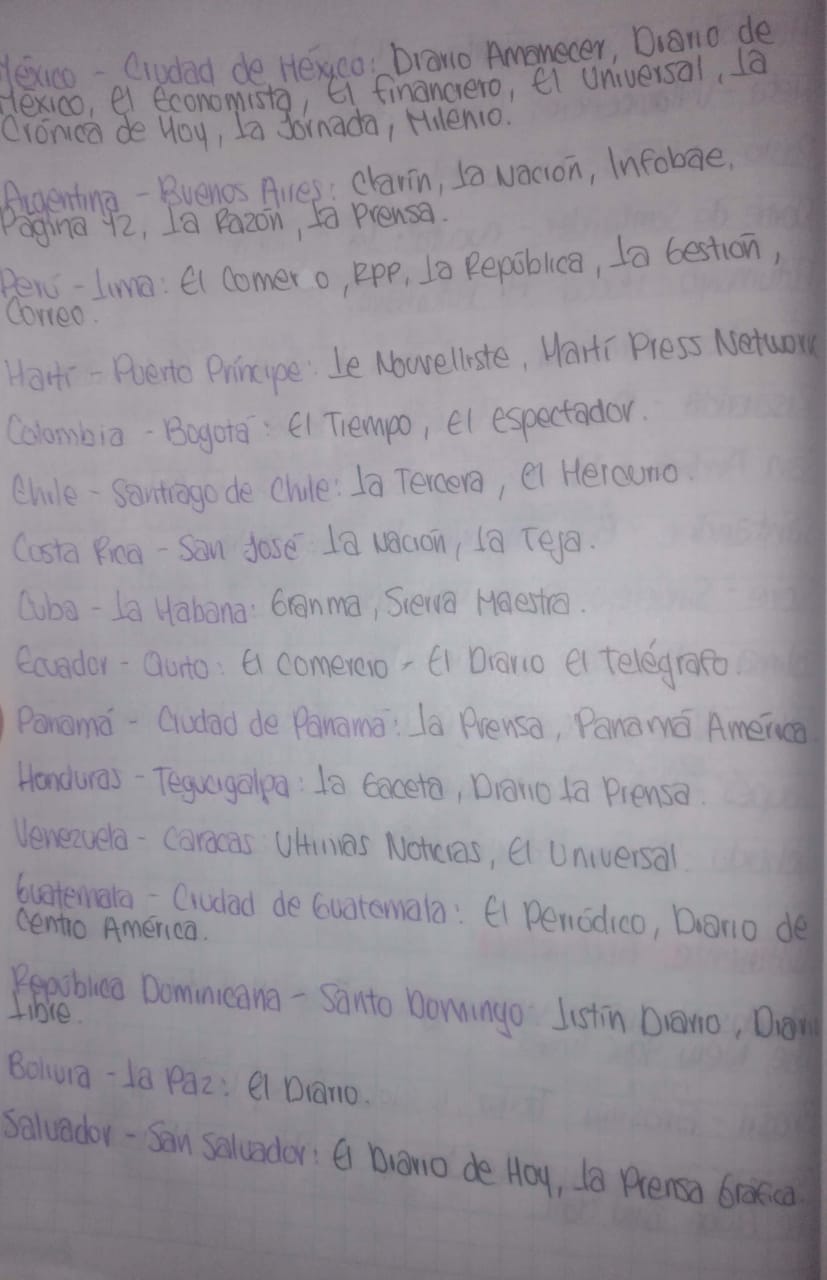 México - Ciudad de México: Diario Amanecer, Diario de
México, el economista, El financiero, El Universal, La
Crónica de Hoy, La Jornada, Milenio.
Argentina - Buenos Aires: Clarín, La Nación, Infobae,
Página 12, La Razón, La Prensa.
Perú - Lima: El Comercio, RPP, La República, La Gestión,
Correo.
Haití - Puerto Príncipe: Le Nouvelliste, Haití Press Network
Colombia - Bogotá: El Tiempo, el espectador.
Chile - Santiago de Chile: La Tercera, el Mercurio.
Costa Rica - San José La Nación, La Teja.
Cuba - La Habana: Granma, Sierra Maestra.
Ecuador - Quito: El comercio - El Diario el telégrafo.
Panamá - Ciudad de Panamá: La Prensa, Panamá América
Honduras - Tegucigalpa: La Gaceta, Diario La Prensa.
Venezuela - Caracas Ultimas Noticias, El Universal.
Guatemala - Ciudad de Guatemala: El Periódico, Diario de
Centro América.
República Dominicana - Santo Domingo Listín Diario, Diario
Libre.
Bolivia - La Paz: el Diario.
Salvador - San Salvador: El Diario de Hoy, La Prensa Gráfica.